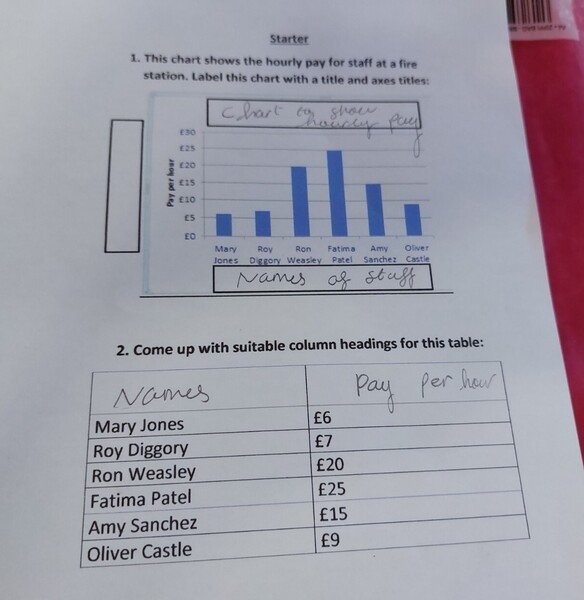 Starter
1. This chart shows the hourly pay for staff at a fire
station. Label this chart with a title and axes titles:
Chart to show
hourly pay
£30
£25
£20
£15
£10
£5
£0
Pay per hour
Mary Roy Ron Fatima Amy Oliver
Jones Diggory Weasley Patel Sanchez Castle
Names of staff
2. Come up with suitable column headings for this table:
Names Pay per hour
Mary Jones £6
Roy Diggory £7
Ron Weasley £20
Fatima Patel £25
Amy Sanchez £15
Oliver Castle £9